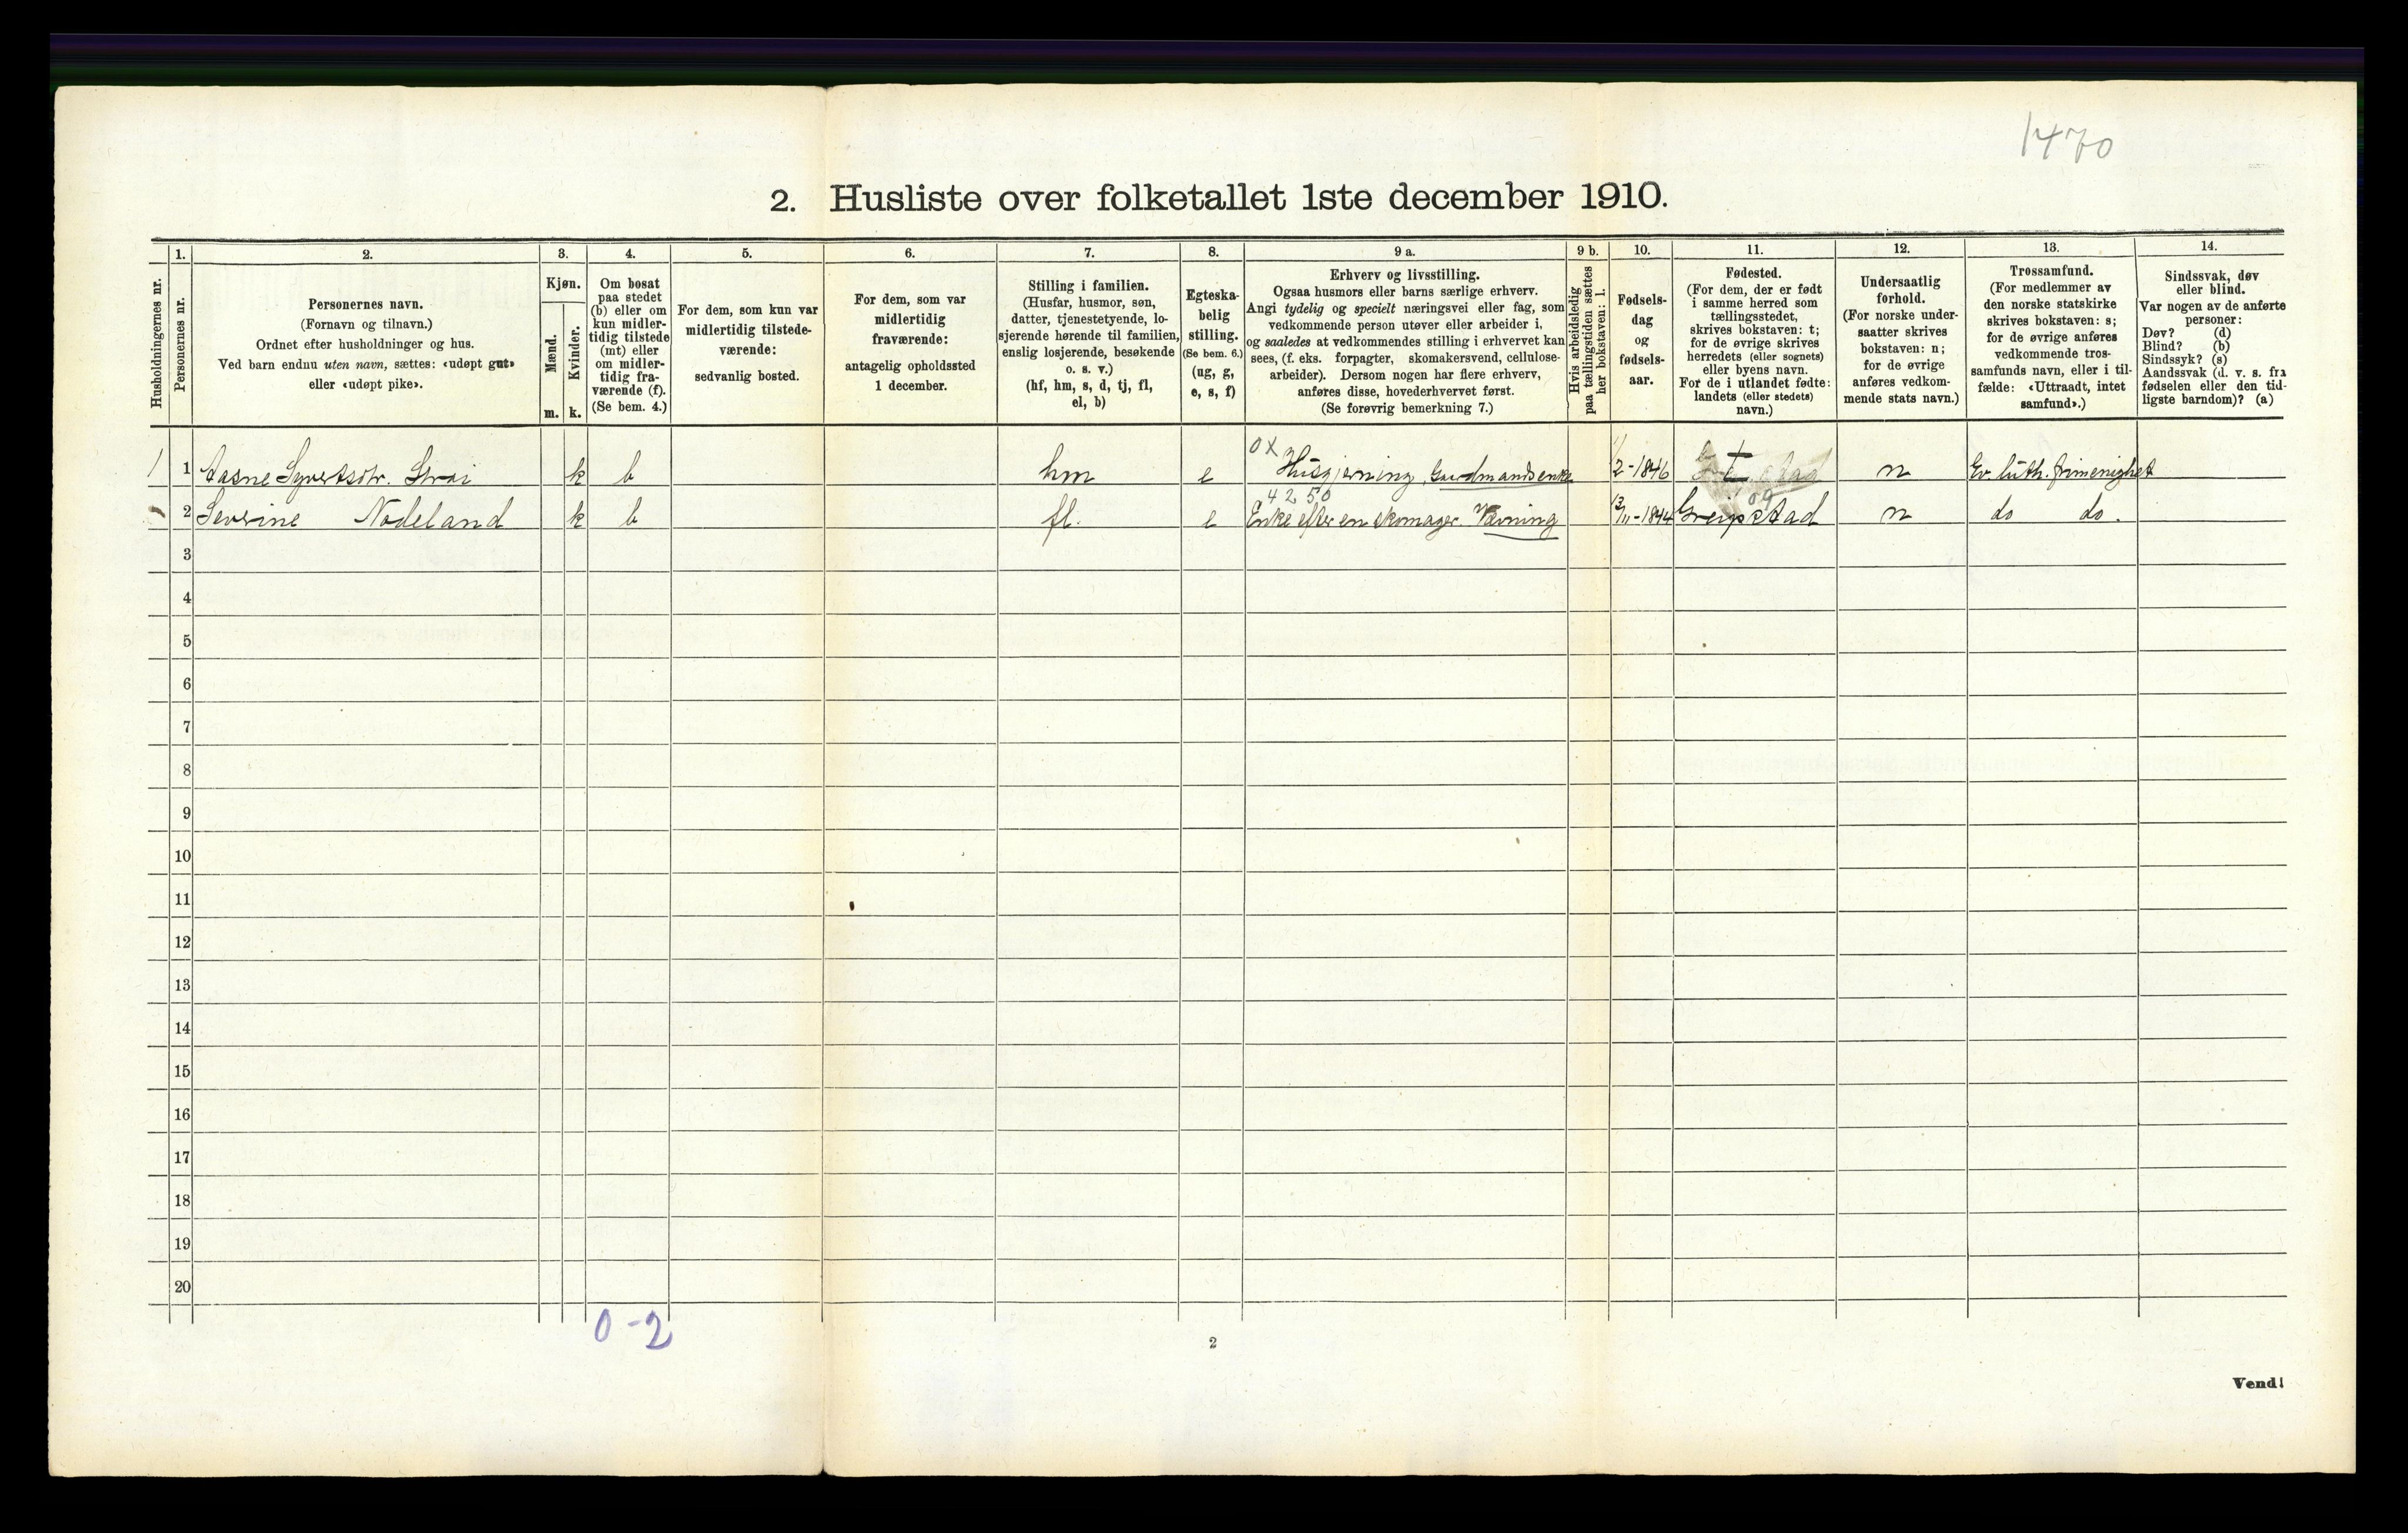 1470
2. Husliste over folketallet 1ste december 1910.
Husholdningernes nr.
1.
Personernes nr.
2.
Personernes navn.
(Fornavn og tilnavn.)
Ordnet efter husholdninger og hus.
Ved barn endnu uten navn, sættes: «udøpt gut»
eller «udøpt pike».
3.
Kjøn.
Mænd.
m.
Kvinder.
k.
4.
Om bosat
paa stedet
(b) eller om
kun midler-
tidig tilstede
(mt) eller
om midler-
tidig fra-
værende (f).
(Se bem. 4.)
5.
For dem, som kun var
midlertidig tilstede-
værende:
sedvanlig bosted.
6.
For dem, som var
midlertidig
fraværende:
antagelig opholdssted
1 december.
7.
Stilling i familien.
(Husfar, husmor, søn,
datter, tjenestetyende, lo-
sjerende hørende til familien,
enslig losjerende, besøkende
o. s. v.)
(hf, hm, s, d, tj, fl,
el, b)
8.
Egteska-
belig
stilling.
(Se bem. 6.)
(ug, g,
e, s, f)
9 a.
Erhverv og livsstilling.
Ogsaa husmors eller barns særlige erhverv.
Angi tydelig og specielt næringsvei eller fag, som
vedkommende person utøver eller arbeider i,
og saaledes at vedkommendes stilling i erhvervet kan
sees, (f. eks. forpagter, skomakersvend, cellulose-
arbeider). Dersom nogen har flere erhverv,
anføres disse, hovederhvervet først.
(Se forøvrig bemerkning 7.)
9 b.
Hvis arbeidsledig
paa tællingstiden sættes
her bokstaven: l.
10.
Fødsels-
dag
og
fødsels-
aar.
11.
Fødested.
(For dem, der er født
i samme herred som
tællingsstedet,
skrives bokstaven: t;
for de øvrige skrives
herredets (eller sognets)
eller byens navn.
For de i utlandet fødte:
landets (eller stedets)
navn.)
12.
Undersaatlig
forhold.
(For norske under-
saatter skrives
bokstaven: n;
for de øvrige
anføres vedkom-
mende stats navn.)
13.
Trossamfund.
(For medlemmer av
den norske statskirke
skrives bokstaven: s;
for de øvrige anføres
vedkommende tros-
samfunds navn, eller i til-
fælde: «Uttraadt, intet
samfund».)
14.
Sindssvak, døv
eller blind.
Var nogen av de anførte
personer:
Døv? (d)
Blind? (b)
Sindssyk? (s)
Aandssvak (d. v. s. fra
fødselen eller den tid-
ligste barndom)? (a)
0x
1 1 Aasne Syvertsdtr. Strai k b hm e Husgjerning, Gaardmandsenke 1/2-1846 t n Ev. luth. frimenighet
4250
2 Severine Nodeland k b fl. e Enke efter en skomager. Vævning 13/11-1844 Greipstad n do do.
3
4
5
6
7
8
9
10
11
12
13
14
15
16
17
18
19
20
0-2
2
Vend!